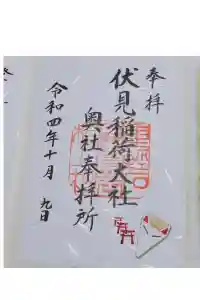 奉拝
伏見稲荷大社
奥社奉拝所
令和四年十月
九日